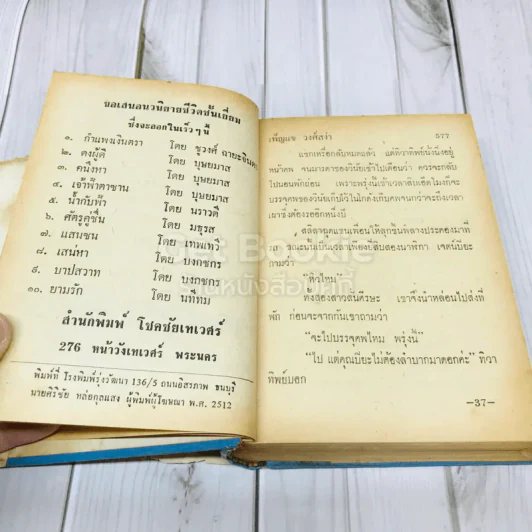 ขอเสนอนวนิยายชีวิตชั้นเยี่ยม
ซึ่งจะออกในเร็ว ๆ นี้
๑. กำแพงเงินตรา โดย ชูวงศ์ ฉายะจินดา
๒. ดงผู้ดี โดย บุษยมาส
๓. คนึงหา โดย บุษยมาส
๔. เจ้าฟ้าตาซาน โดย บุษยมาส
๕. น้ำกับฟ้า โดย นราวดี
๖. ศัตรูคู่ชื่น โดย มธุรส
๗. แสนซน โดย เทพเทวี
๘. เสน่หา โดย บงกชกร
๙. บาปสวาท โดย บงกชกร
๑๐. ยามรัก โดย นทีทม
สำนักพิมพ์ โชคชัยเทเวศร์
276 หน้าวังเทเวศร์ พระนคร
พิมพ์ที่ โรงพิมพ์รุ่งวัฒนา 136/5 ถนนอิสรภาพ ธนบุรี
นายศิริชัย หล่อกุลแสง ผู้พิมพ์ผู้โฆษณา พ.ศ. 2512
เพ็ญแข วงศ์สง่า 577
แขกเหรื่อกลับหมดแล้ว แต่ทิวาทิพย์นั่งนิ่งอยู่
หน้าศพ จนมารดาของวินัยเข้าไปเตือนว่า ควรจะกลับ
ไปนอนพักก่อน เพราะพรุ่งนี้เช้าเวลาสิบเอ็ดโมงก็จะ
บรรจุศพของวินัยเก็บไว้ในโกดังเก็บศพจนกว่าจะถึงเวลา
เผาซึ่งต้องรออีกหนึ่งปี
"หิวไหม"
ทั้งสองสาวสั่นศรษะ เขาจึงนำหล่อนไปส่งที่
พัก ก่อนจะจากกันเขาถามว่า
"จะไปบรรจุศพไหม พรุ่งนี้"
"ไป แต่คุณเบียะไม่ต้องลำบากมาดอกค่ะ" ทิวา
ทิพย์บอก
—37—
Get Bookie
ร้านหนังสือเก็ทบุ๊คกี้